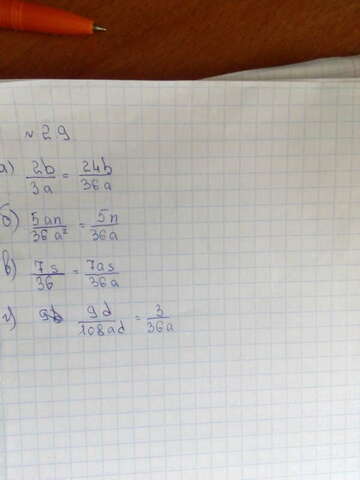 № 29
а) 2b/3a = 24b/36a
б) 5an/36a² = 5n/36a
в) 7s/36 = 7as/36a
г) 9d/108ad = 3/36a